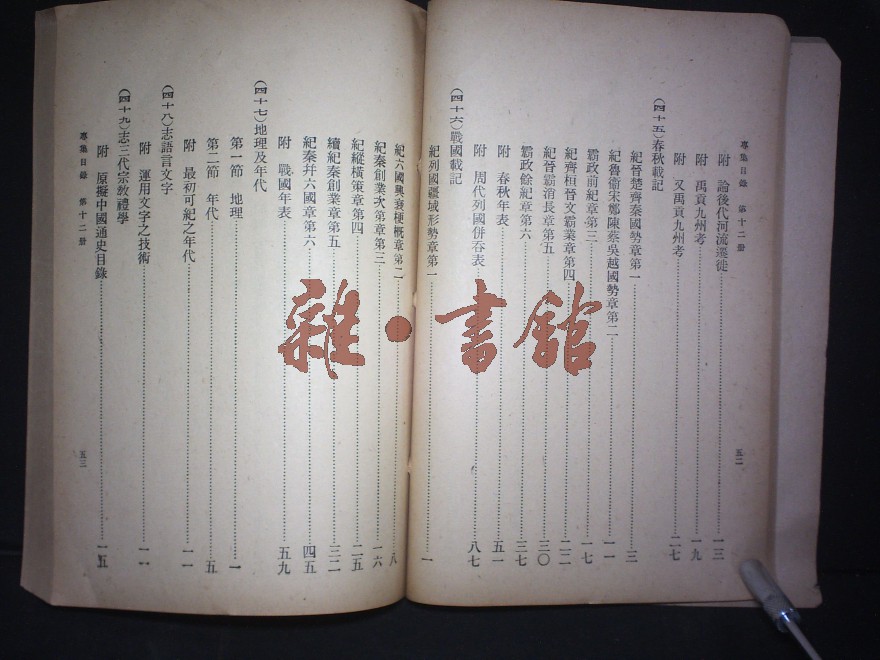 專集目錄 第十二册 五二
附 論後代河流遷徙 一三
附 禹貢九州考 一九
附 又禹貢九州考 二七
(四十五)春秋載記
紀晉楚齊秦國勢章第一 三
紀魯衞宋鄭陳蔡吳越國勢章第二 一一
霸政前紀章第三 一七
紀齊桓晉文霸業章第四 二二
紀晉霸消長章第五 三〇
霸政餘紀章第六 三七
附 春秋年表 五一
附 周代列國併吞表 八七
(四十六)戰國載記
紀列國疆域形勢章第一 一
紀六國興衰梗概章第二 八
紀秦創業次第章第三 一六
紀縱橫策章第四 二五
續紀秦創業章第五 三二
紀秦幷六國章第六 四五
附 戰國年表 五九
(四十七)地理及年代
第一節 地理 一
第二節 年代 五
附 最初可紀之年代 一一
(四十八)志語言文字
附 運用文字之技術 一一
(四十九)志三代宗教禮學
附 原擬中國通史目錄 一五
專集目錄 第十二册 五三
雜·書館